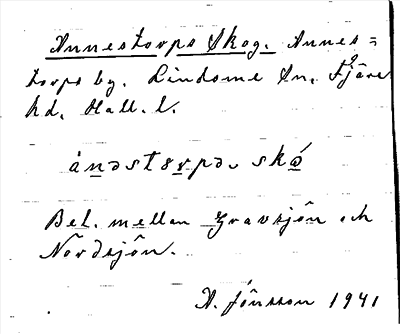 Annestorps Skog. Annes=
torps by. Lindome sn. Fjäre
hd. Hall. l.
ànəstɷrpə skó
Bel. mellan Gravsjön och
Nordsjön.
A. Jönsson 1941